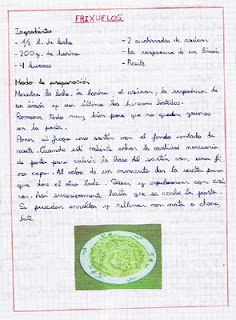 FRIXUELOS
Ingredientes
- 1/2 l. de leche
- 2 cucharadas de azúcar
- 200g. de harina
- La raspadura de un limón
- 4 huevos
- Aceite
Modo de preparación
Mezclas la leche, la harina, el azúcar, la raspadura de
un limón y por último los huevos batidos.
Remover todo muy bien para que no queden grumos
en la pasta.
Poner al fuego una sartén con el fondo untado de
aceite. Cuando esté caliente echar la cantidad necesaria
de pasta para cubrir la base del sartén con una fi
na capa. Al cabo de un momento dar la vuelta para
que dore el otro lado. Sacar y espolvorear con azú
car. Así sucesivamente hasta que se acabe la pasta.
Se pueden enrollar y rellenar con nata o choco
late.